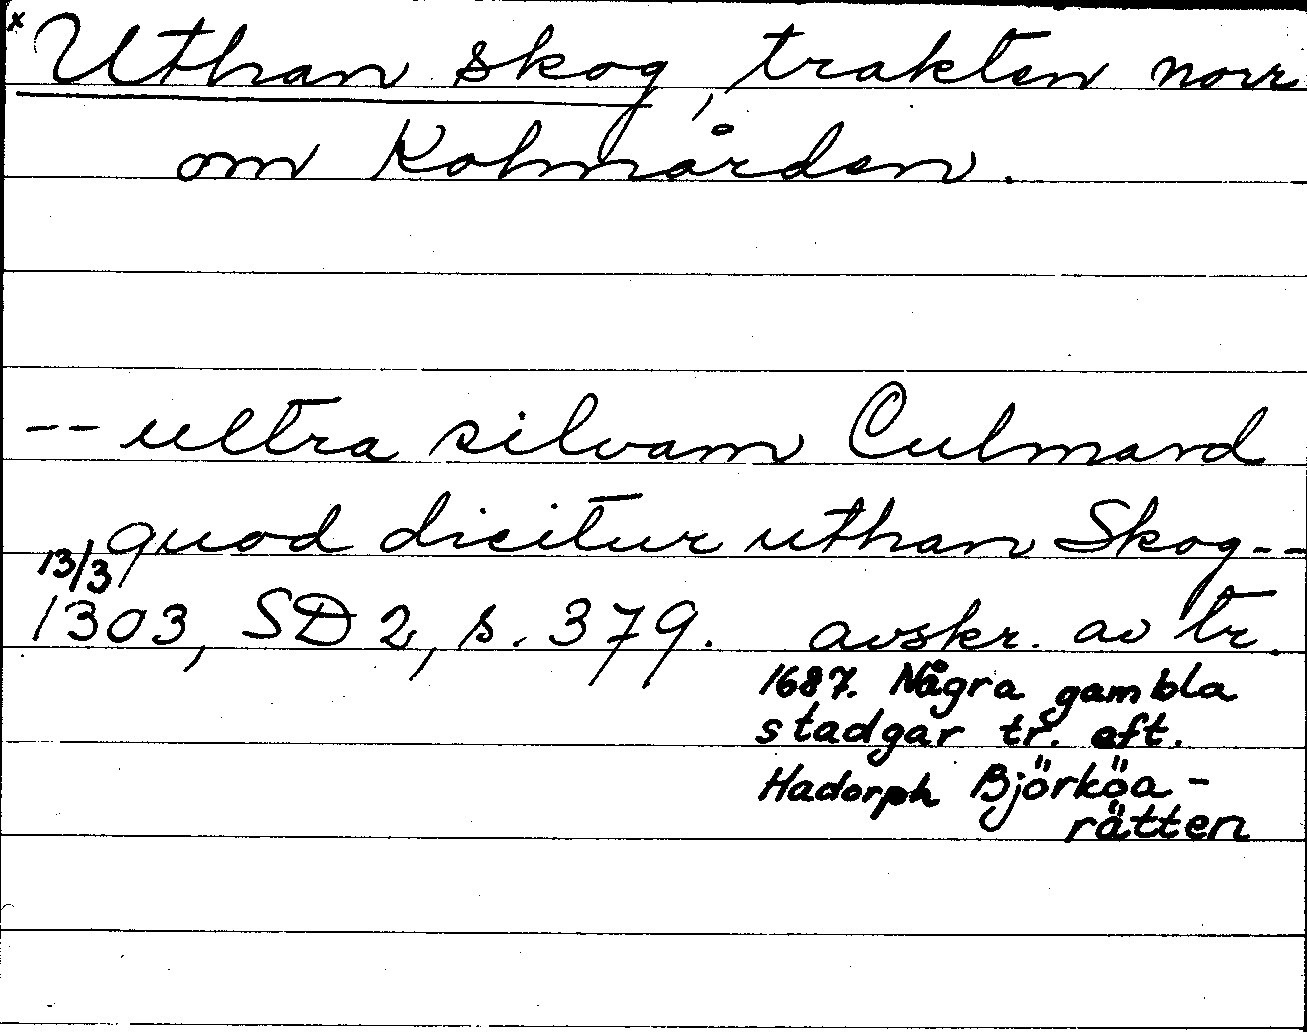 x Uthan skog, trakten norr
om Kolmården.
-- ultra silvam Culmard
quod dicitur uthan Skog--
13/3
1303, SD 2, s. 379. avskr. av tr.
1687. Några gambla
stadgar tr. eft.
Hadorph Björköa-
rätten